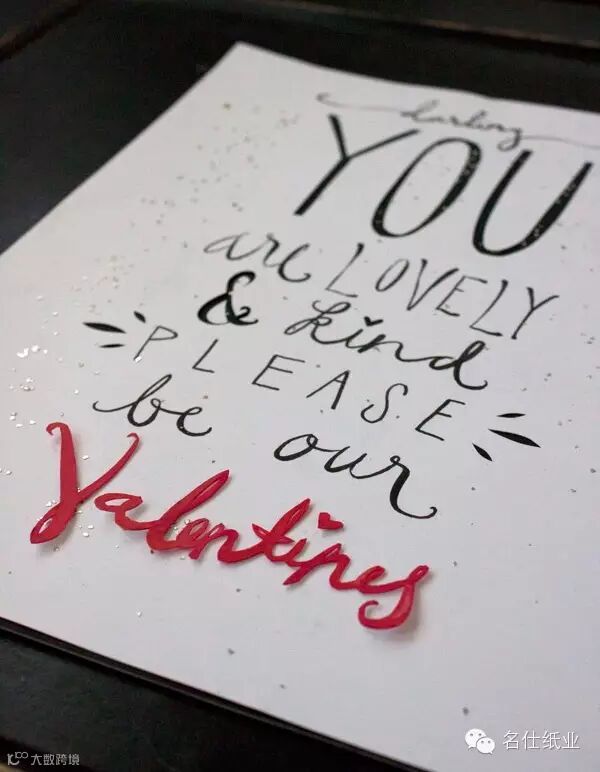 darling
YOU
are LOVELY
& kind
PLEASE
be our
Valentines
名仕纸业
大数跨境